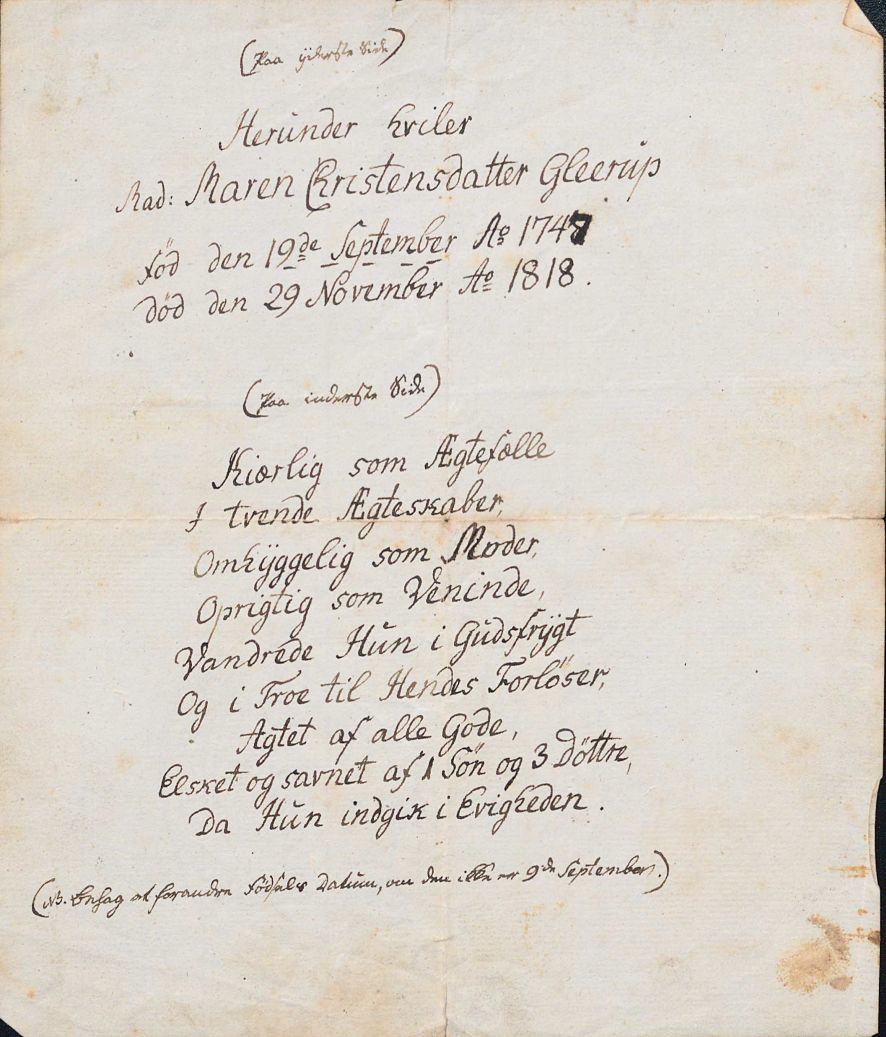 (Paa yderste Side)
Herunder hviler
Mad: Maren Christensdatter Gleerup
Fød den 19de September Ao 1747
død den 29 November Ao 1818.
(Paa inderste Side)
Kiærlig som Ægtefælle
I tvende Ægteskaber,
Omhÿggelig som Moder,
Oprigtig som Veninde,
Vandrede Hun i Gudsfrÿgt
Og i Troe til Hendes Forløser,
Agtet af alle Gode,
Elsket og savnet af 1 Søn og 3 Døttre,
Da Hun indgik i Evigheden.
(NB. behag at forandre Fødsels Datum, om den ikke er 9de September.)